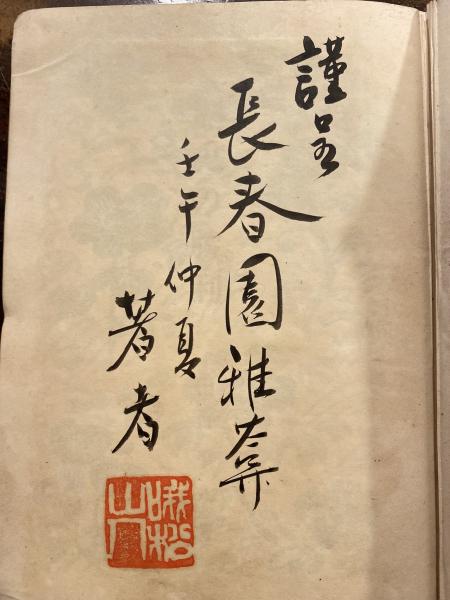 謹呈
長春園雅
壬午仲夏
著者